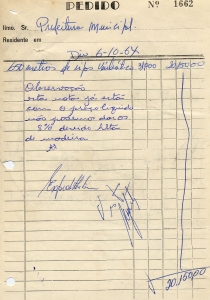 PEDIDO Nº 1662
Ilmo. Sr. Prefeitura Municipal
Residente em
Dia 6-10-64
650 metros de ripas
Observação
estas notas já estão
com o preço liquido
não podemos dar os
5% devido alta
de madeira
20.150,00